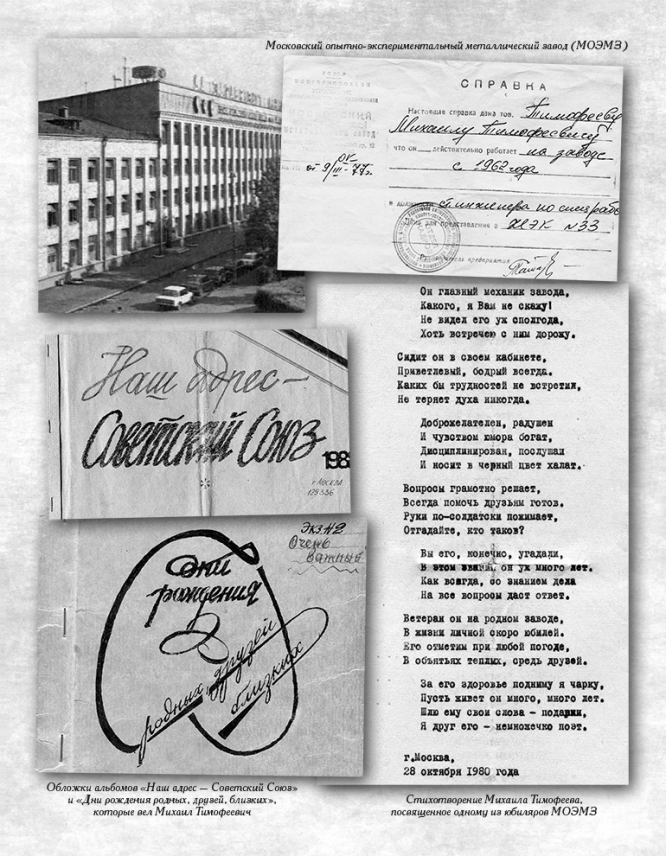 Московский опытно-экспериментальный металлический завод (МОЭМЗ)
СПРАВКА
Настоящая справка дана тов. Тимофееву
Михаилу Тимофеевичу
что он действительно работает на заводе
с 1962 года
в должности ст. инженера по
для представления в ЖЭК №33
предприятия
Он главный механик завода,
Какого, я Вам не скажу!
Не видел его уж сполгода,
Хоть встречею с ним дорожу.
Сидит он в своем кабинете,
Приветлевый, бодрый всегда.
Каких бы трудностей не встретил,
Не теряет духа никогда.
Доброжелателен, радушен
И чувством юмора богат,
Дисциплинирован, послушан
И носит в черный цвет халат.
Вопросы грамотно решает,
Всегда помочь друзьям готов.
Руки по-солдатски пожимает,
Отгадайте, кто таков?
Вы его, конечно, угадали,
В этом звании он уж много лет.
Как всегда, со знанием дела
На все вопросы даст ответ.
Ветеран он на родном заводе,
В жизни личной скоро юбилей.
Его отметим при любой погоде,
В объятьях теплых, средь друзей.
За его здоровье подниму я чарку,
Пусть живет он много, много лет.
Шлю ему свои слова - подарки,
Я друг его - немножечко поэт.
г.Москва,
28 октября 1980 года
Наш адрес —
Советский Союз
198
г. Москва
129336
Экз. №2
Очень
важный
Дни
рождения
родных, друзей
близких
Обложки альбомов «Наш адрес — Советский Союз»
и «Дни рождения родных, друзей, близких»,
которые вел Михаил Тимофеевич
Стихотворение Михаила Тимофеева,
посвященное одному из юбиляров МОЭМЗ